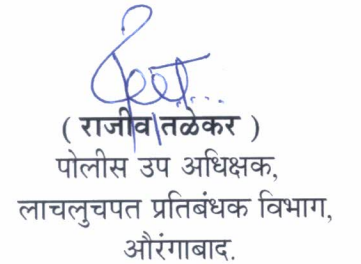 ( राजीव तळेकर )
पोलीस उप अधिक्षक,
लाचलुचपत प्रतिबंधक विभाग,
औरंगाबाद.